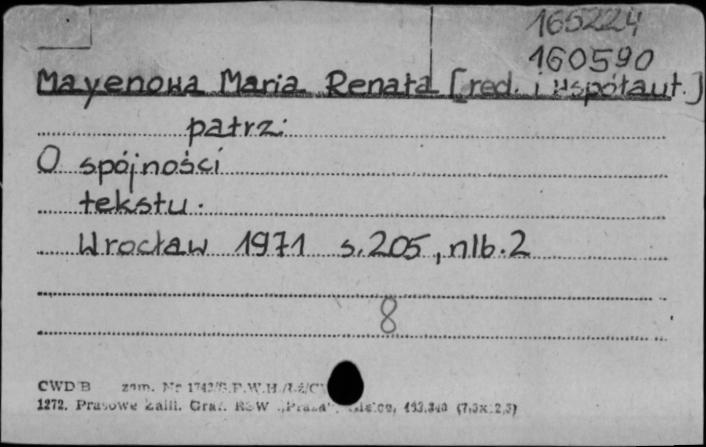 165224
160590
Mayenowa Maria Renata [red. i współaut.]
patrz:
O spójności
tekstu.
Wrocław 1971 s. 205, nlb. 2
8
CWD B zam. Nr
1272. Prasowe Zakł. Graf. RSW „Prasa”, Kielce,